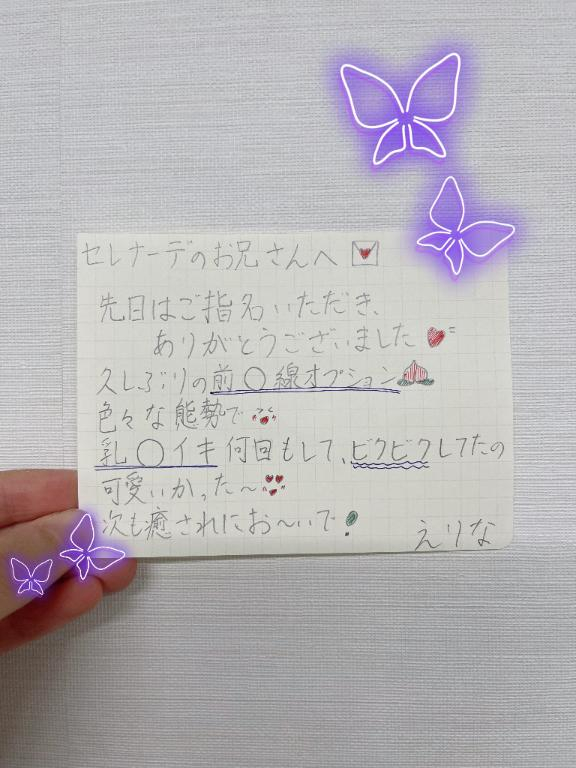 セレナーデのお兄さんへ
先日はご指名いただき、
ありがとうございました
久しぶりの前〇線オプション
色々な態勢で
乳〇イキ何回もして、ビクビクしてたの
可愛いかった〜
次も癒されにお〜いで!
えりな